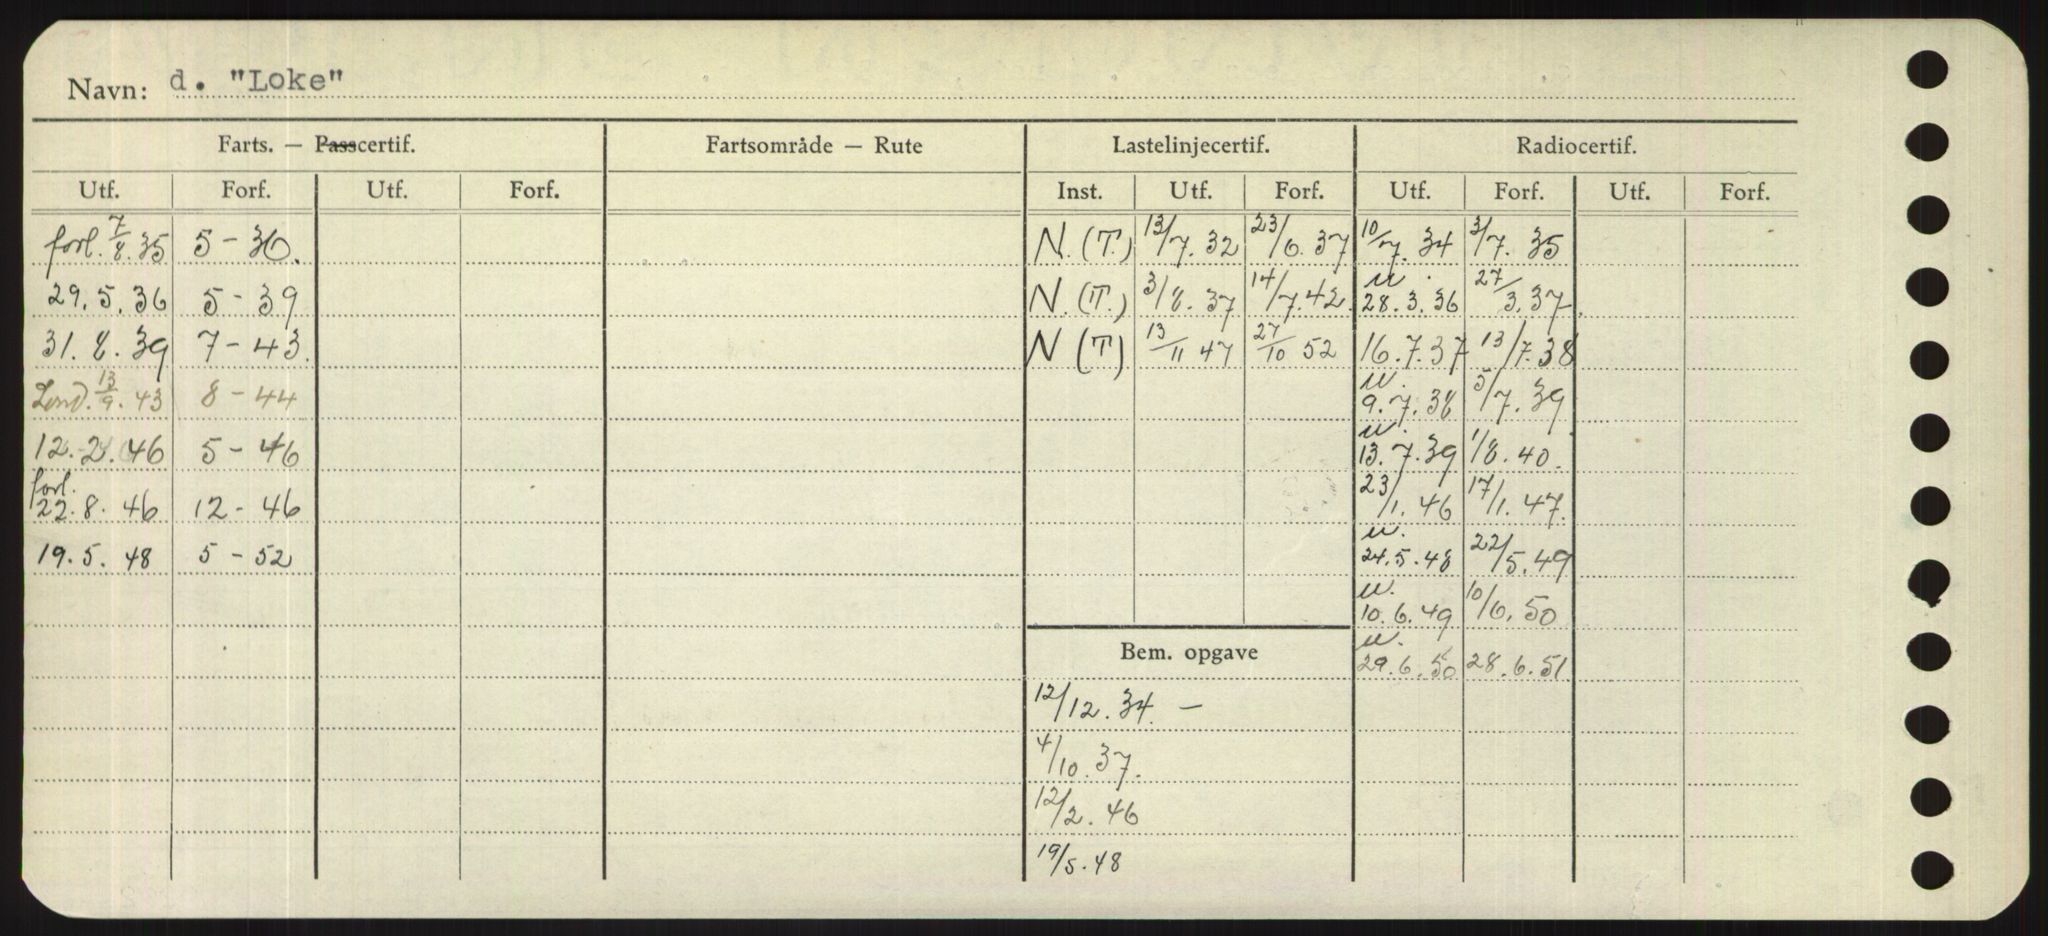 Navn: d. "Loke"
Farts. — Passcertif. Fartsområde — Rute Lastelinjecertif. Radiocertif.
Utf. Forf. Utf. Forf. Inst. Utf. Forf. Utf. Forf. Utf. Forf.
forl. 7/8.35 5-36. N. (T.) 13/7.32 23/6.37 10/7.34 3/7.35
29.5.36 5-39 N. (T.) 3/8.37 14/7.42. u. 28.3.36 27/3.37
31.8.39 7-43. N (T) 13/11 47 27/10 52 16.7.37 13/7.38
Lond. 13/9.43 8-44 u. 9.7.38 5/7.39
12.2.46 5-46 u. 13.7.39 1/8.40.
forl. 22.8.46 12-46 23/1.46 17/1.47.
19.5.48 5-52 u. 24.5.48 22/5.49
u. 10.6.49 10/6.50
Bem. opgave u. 29.6.50 28.6.51
12/12.34. —
4/10.37.
12/2.46
19/5.48